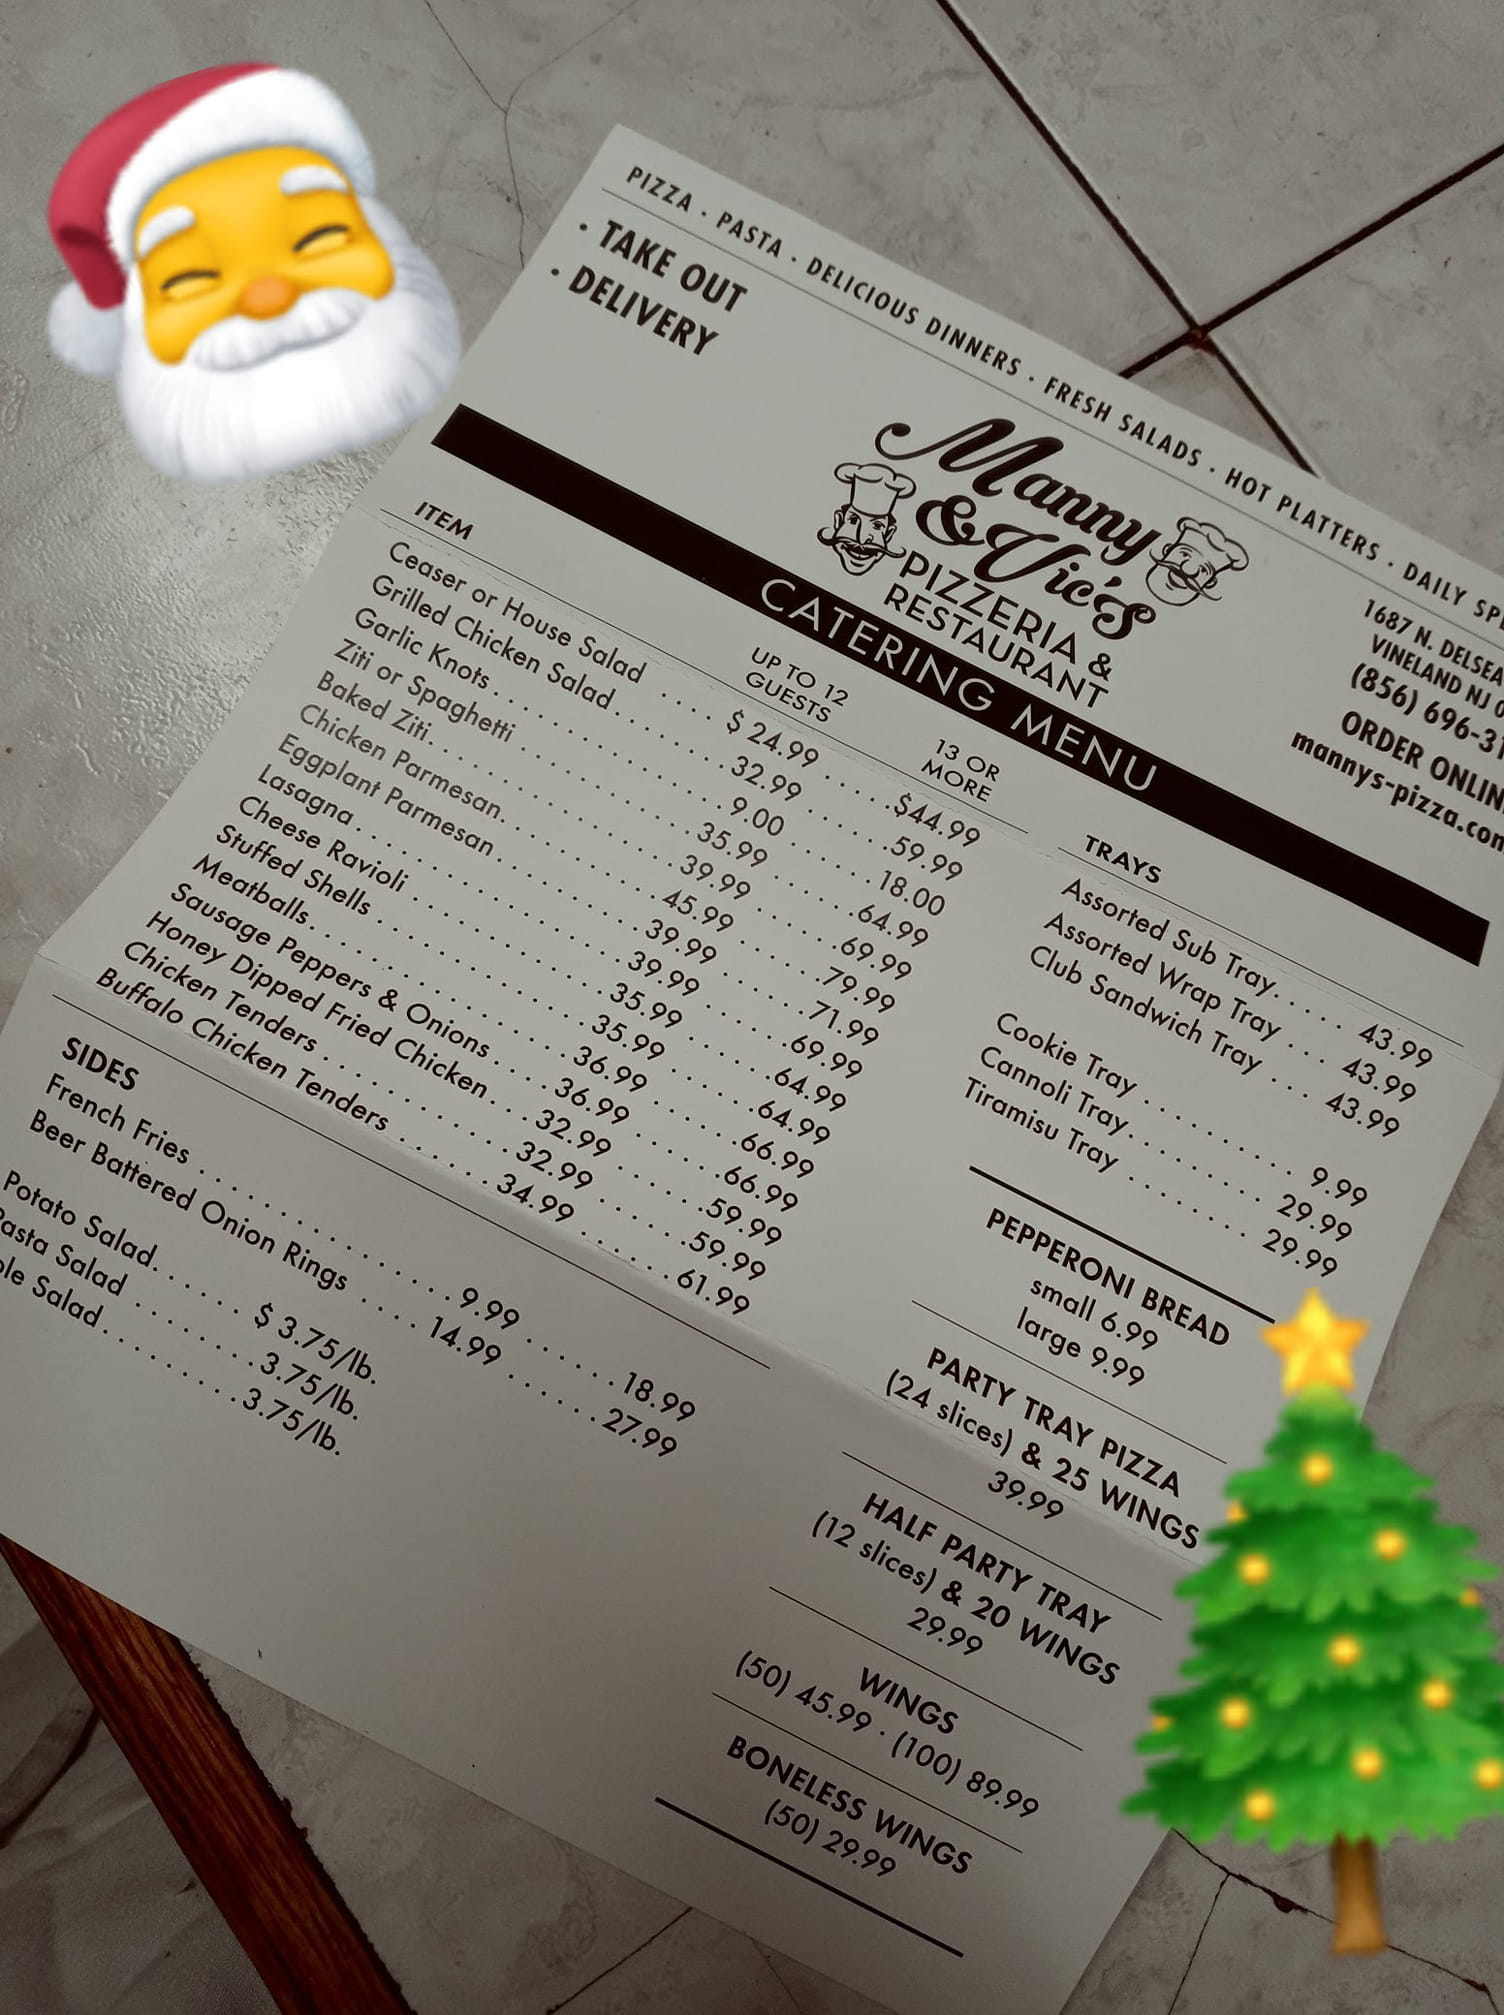 PIZZA · PASTA · DELICIOUS DINNERS · FRESH SALADS · HOT PLATTERS · DAILY
· TAKE OUT
· DELIVERY
Manny
& Vic's
PIZZERIA &
RESTAURANT
1687 N.
VINELAND NJ
(856)
ORDER
mannys-pizza.com
CATERING MENU
ITEM UP TO 12 GUESTS 13 OR MORE
Ceaser or House Salad . . . . . $ 24.99 . . . . . . $44.99
Grilled Chicken Salad . . . . . . . 32.99 . . . . . . . 59.99
Garlic Knots . . . . . . . . . . . . . 9.00 . . . . . . . 18.00
Ziti or Spaghetti . . . . . . . . . . 35.99 . . . . . . . 64.99
Baked Ziti . . . . . . . . . . . . . . 39.99 . . . . . . . 69.99
Chicken Parmesan . . . . . . . . . 45.99 . . . . . . . 79.99
Eggplant Parmesan . . . . . . . . 39.99 . . . . . . . 71.99
Lasagna . . . . . . . . . . . . . . . 39.99 . . . . . . . 69.99
Cheese Ravioli . . . . . . . . . . . 35.99 . . . . . . . 64.99
Stuffed Shells . . . . . . . . . . . . 35.99 . . . . . . . 64.99
Meatballs . . . . . . . . . . . . . . 36.99 . . . . . . . 66.99
Sausage Peppers & Onions . . . . 36.99 . . . . . . . 66.99
Honey Dipped Fried Chicken . . . 32.99 . . . . . . . 59.99
Chicken Tenders . . . . . . . . . . 32.99 . . . . . . . 59.99
Buffalo Chicken Tenders . . . . . . 34.99 . . . . . . . 61.99
SIDES
French Fries . . . . . . . . . . . . . 9.99 . . . . . . . 18.99
Beer Battered Onion Rings . . . . 14.99 . . . . . . . 27.99
Potato Salad . . . . . . $ 3.75/lb.
Pasta Salad . . . . . . . . 3.75/lb.
Salad . . . . . . . . . . 3.75/lb.
TRAYS
Assorted Sub Tray . . . . . 43.99
Assorted Wrap Tray . . . . 43.99
Club Sandwich Tray . . . . 43.99
Cookie Tray . . . . . . . . . . 9.99
Cannoli Tray . . . . . . . . . 29.99
Tiramisu Tray . . . . . . . . 29.99
PEPPERONI BREAD
small 6.99
large 9.99
PARTY TRAY PIZZA
(24 slices) & 25 WINGS
39.99
HALF PARTY TRAY
(12 slices) & 20 WINGS
29.99
WINGS
(50) 45.99 · (100) 89.99
BONELESS WINGS
(50) 29.99